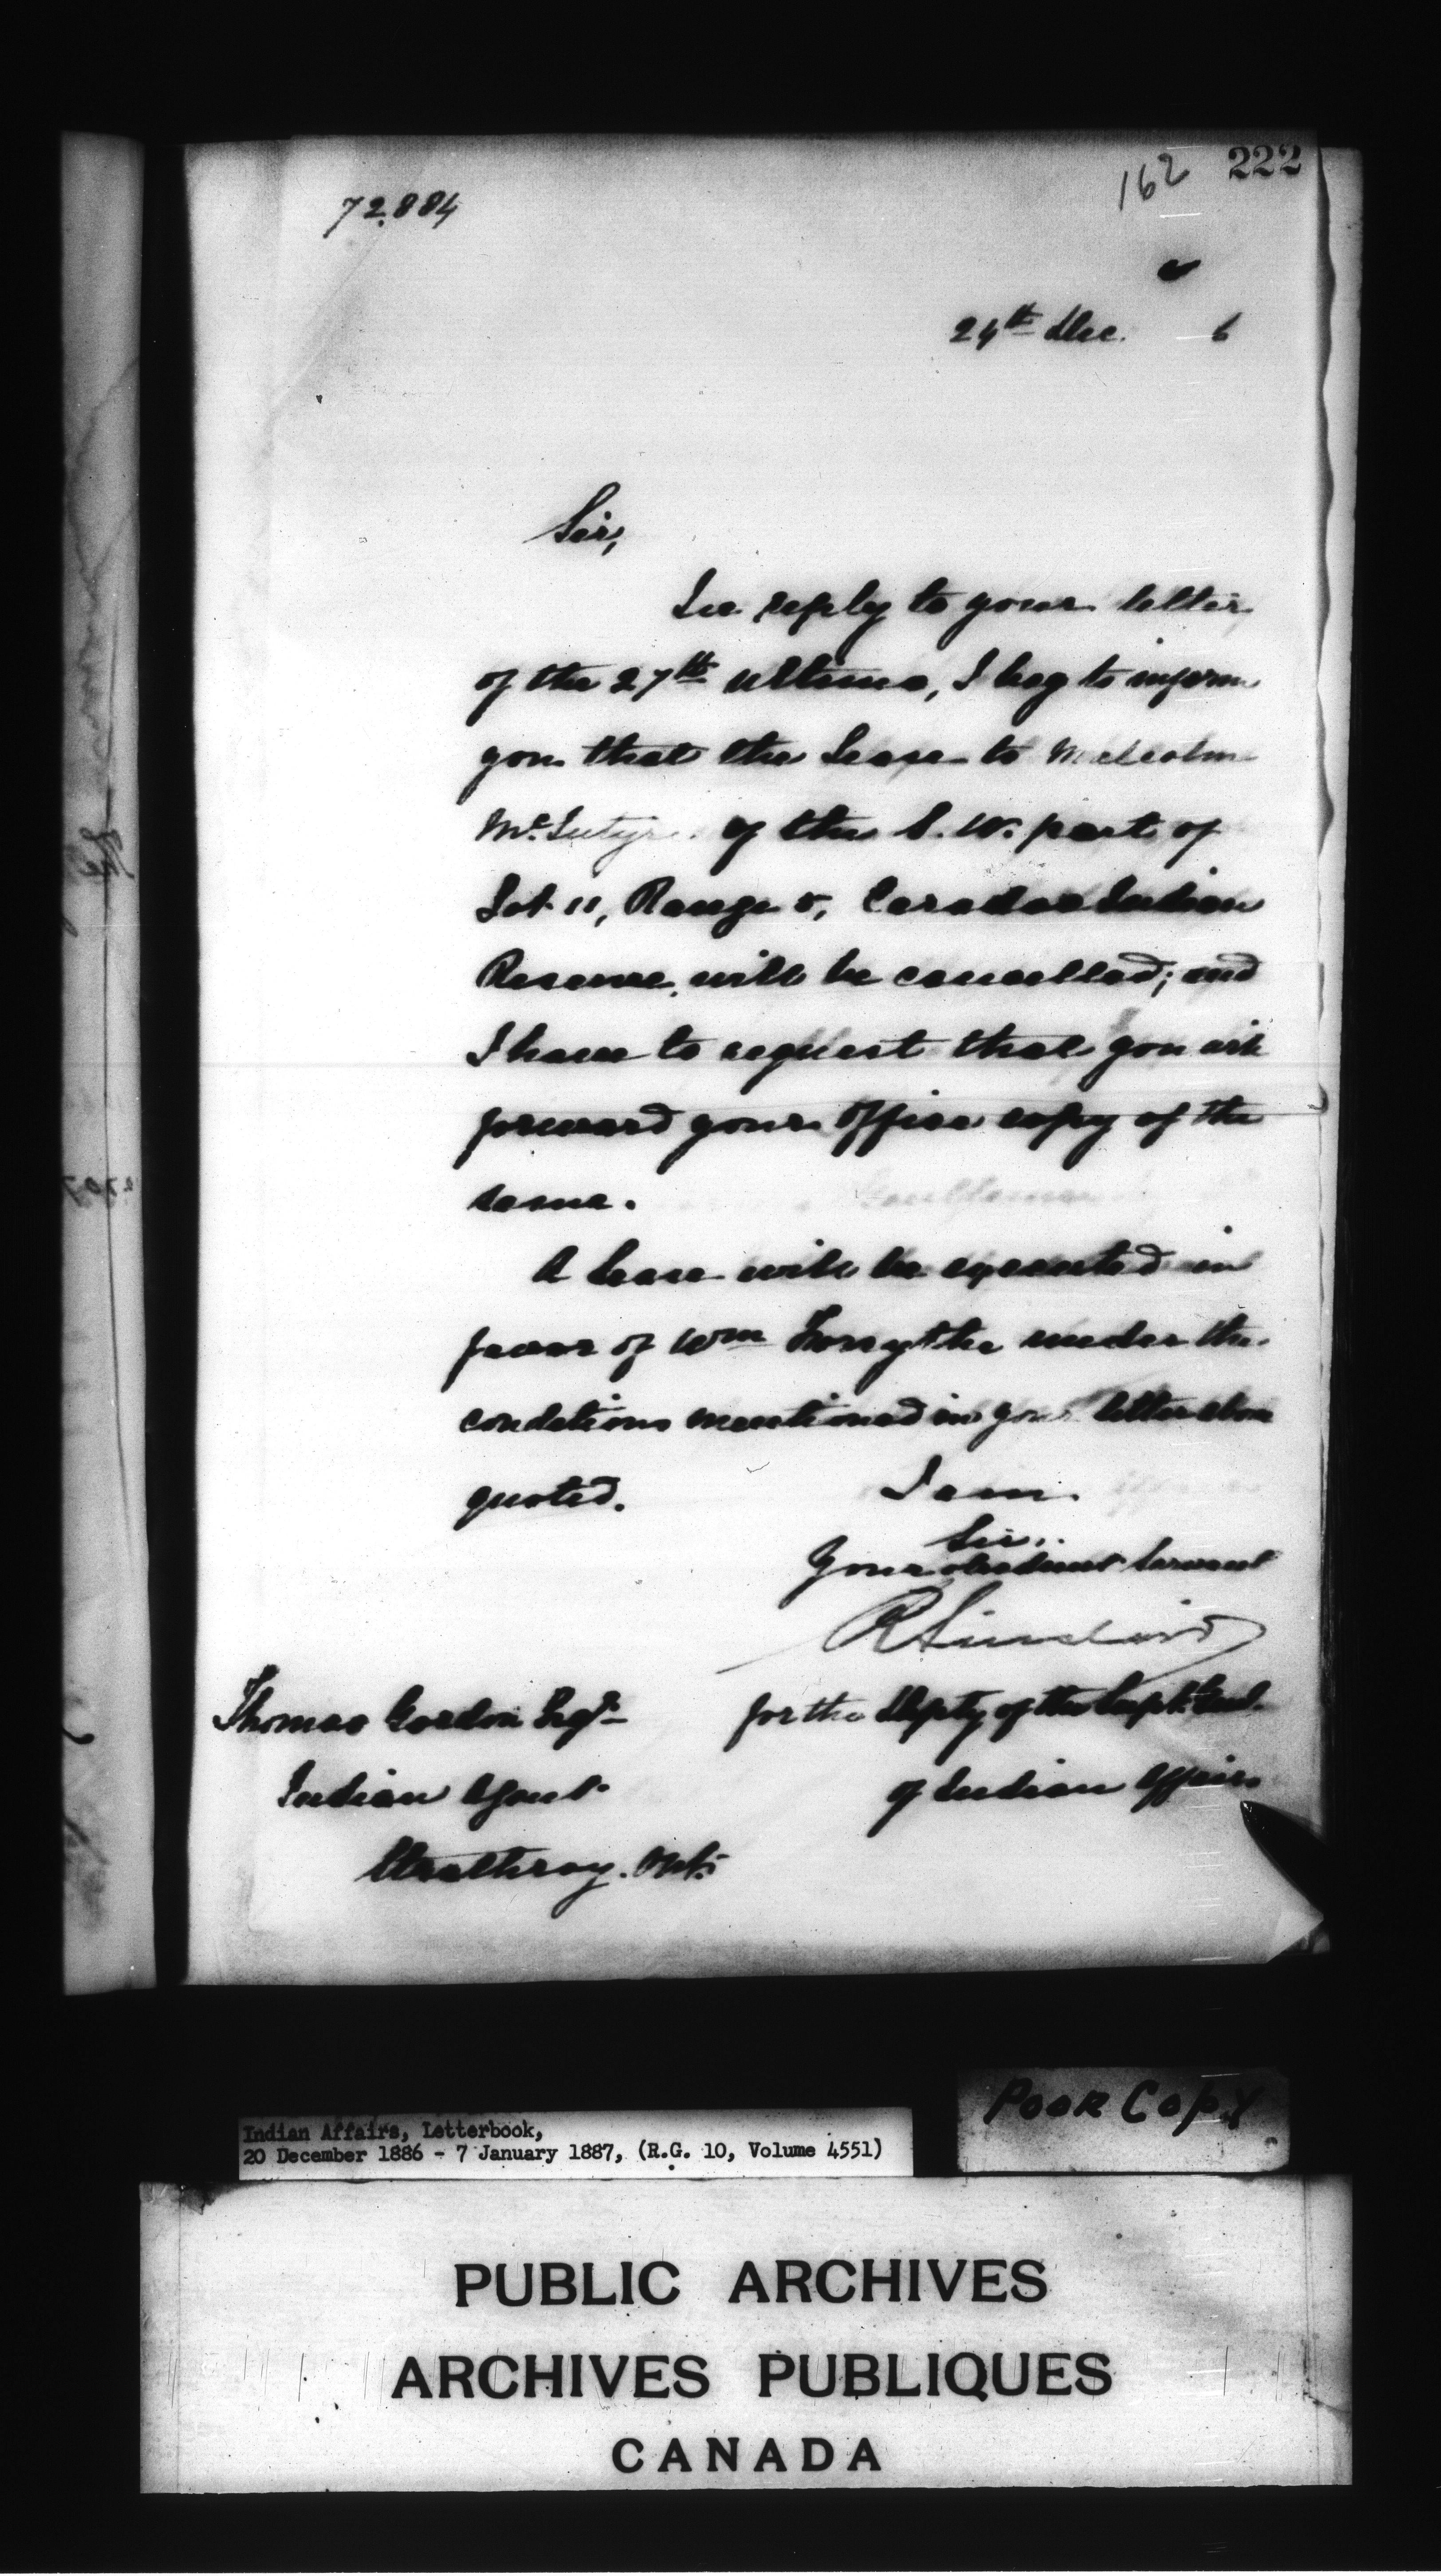 162 222
72.884
24th Dec. 6
Sir,
In reply to your letter
of the 27th ultimo, I beg to inform
you that the Lease to Malcolm
McIntyre of the S. W. part of
Lot 11, Range 5, Caradoc Indian
Reserve, will be cancelled; and
I have to request that you will
forward your office copy of the
same.
A Lease will be executed in
favor of Wm Forsythe under the
conditions mentioned in your letter above
quoted.
I am
Sir,
Your obedient Servant
R Sinclair
Thomas Gordon Esqr
for the Depty of the Supt. Genl.
Indian Agent
of Indian Affairs
Strathroy. Ont.
Poor Copy
Indian Affairs, Letterbook,
20 December 1886 - 7 January 1887, (R.G. 10, Volume 4551)
PUBLIC ARCHIVES
ARCHIVES PUBLIQUES
CANADA